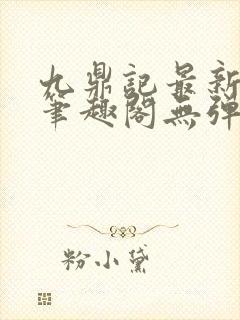 九鼎記最新
筆趣閣無彈
粉小黛